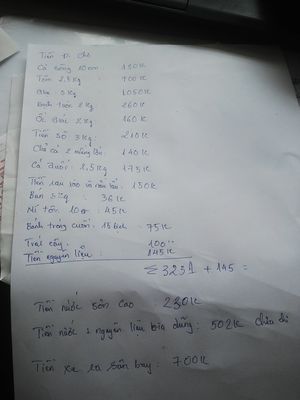 Tiền đi chợ
Cá bống 10 con : 130k
Tôm 2,3 kg : 700k
Ghẹ 3 kg : 1050k
Bạch tuộc 2 kg : 260k
Ốc 2 kg : 160k
Tiền sò 3 kg : 210k
Chả cá 2 : 140k
Cá đuối : 2,5 kg : 175k
Tiền rau và : 150k
Bún 5 kg : 36k
Mì tôm 10 : 45k
Bánh tráng cuốn : 15 75k
Trái cây : 100
Tiền nguyên liệu : 145k
Σ 3231 + 145 =
Tiền nước sôn cao : 230k
Tiền nước + nguyên liệu bia dùng : 502k chưa
Tiền xe ra sân bay : 700k